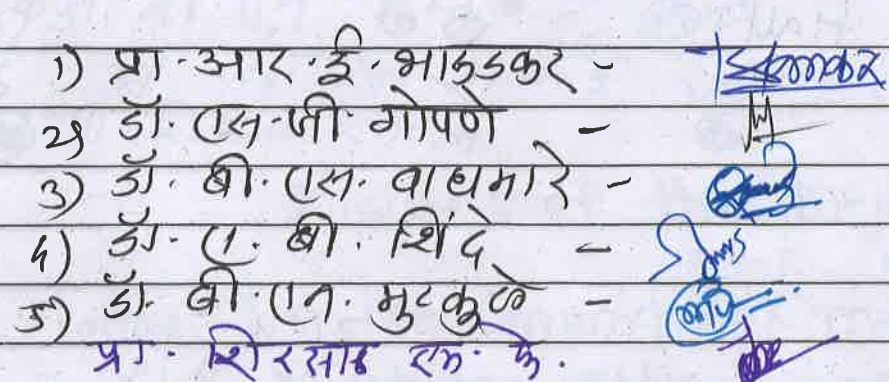 1) प्रा. आर. ई. भाडकर -
2) डॉ. एस. जी. गोपणे -
3) डॉ. बी. एस. वाघमारे -
4) डॉ. ए. बी. शिंदे -
5) डॉ. बी. एन. मुटकुळे -
प्रा. शिरसाठ एम. के.